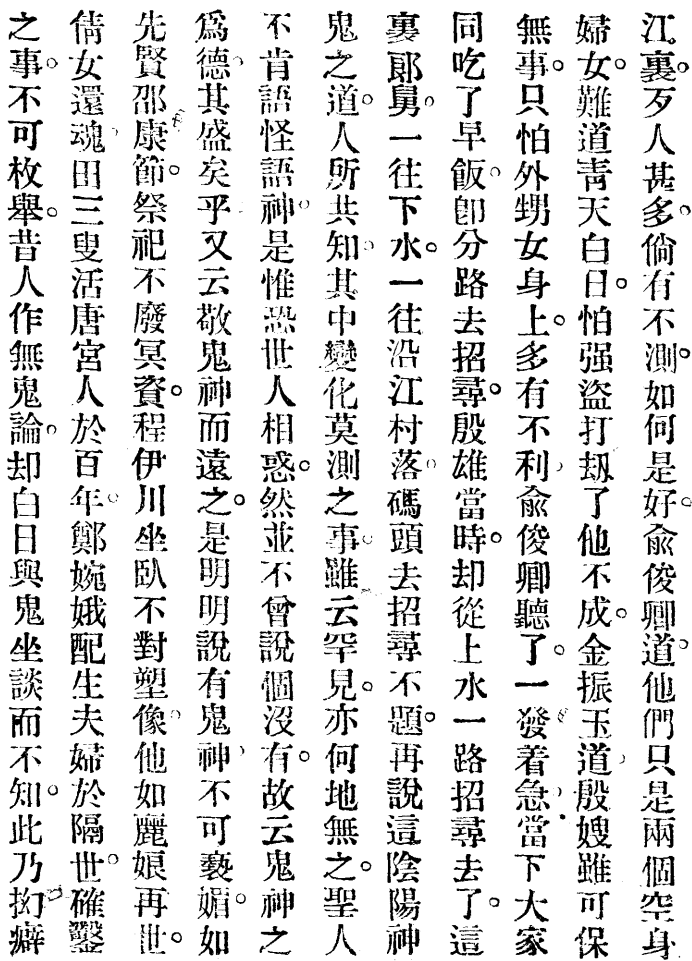 江裏。歹人甚多。倘有不測。如何是好。兪俊卿道。他們只是兩個空身
婦女。難道靑天白日。怕强盜打刼了他不成。金振玉道。殷嫂雖可保
無事。只怕外甥女身上。多有不利。兪俊卿聽了。一發着急。當下大家
同吃了早飯。卽分路去招尋。殷雄當時。却從上水一路招尋去了。這
裏郞舅。一往下水。一往沿江村落。碼頭去招尋不題。再說這陰陽神
鬼之道。人所共知。其中變化莫測之事。雖云罕見。亦何地無之。聖人
不肯語怪語神。是惟恐世人相惑。然並不曾說個沒有。故云鬼神之
爲德。其盛矣乎。又云敬鬼神而遠之。是明明說有鬼神。不可褻媚。如
先賢邵康節。祭祀不廢冥資。程伊川坐臥不對塑像。他如麗娘再世。
倩女還魂。田三叟活唐宮人於百年。鄭婉娥配生夫婦於隔世。確鑿
之事。不可枚舉。昔人作無鬼論。却白日與鬼坐談而不知。此乃拘癖